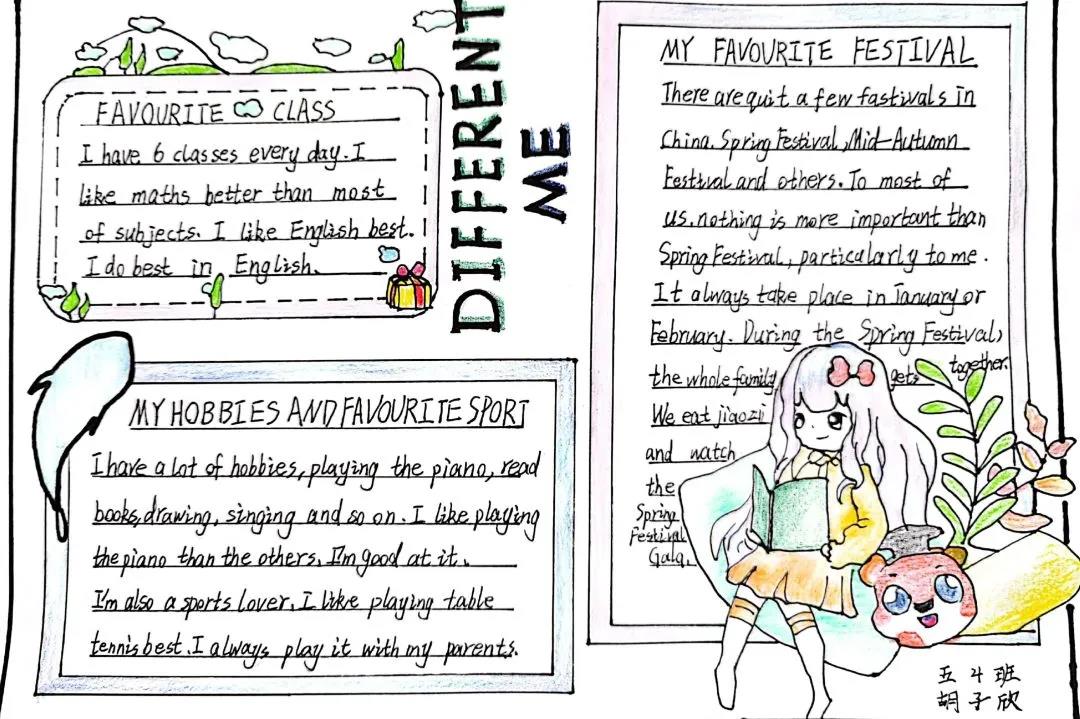 FAVOURITE CLASS
I have 6 classes every day. I
like maths better than most
of subjects. I like English best.
I do best in English.
DIFFERENT
ME
MY HOBBIES AND FAVOURITE SPORT
I have a lot of hobbies, playing the piano, read
books, drawing, singing and so on. I like playing
the piano than the others. I'm good at it.
I'm also a sports lover. I like playing table
tennis best. I always play it with my parents.
MY FAVOURITE FESTIVAL
There are quit a few fastivals in
China. Spring Festival, Mid-Autumn
Festival and others. To most of
us, nothing is more important than
Spring Festival, particularly to me.
It always take place in January or
February. During the Spring Festival,
the whole family gets together.
We eat jiaozi
and watch
the
Spring
Festival
Gala.
五4班
胡子欣